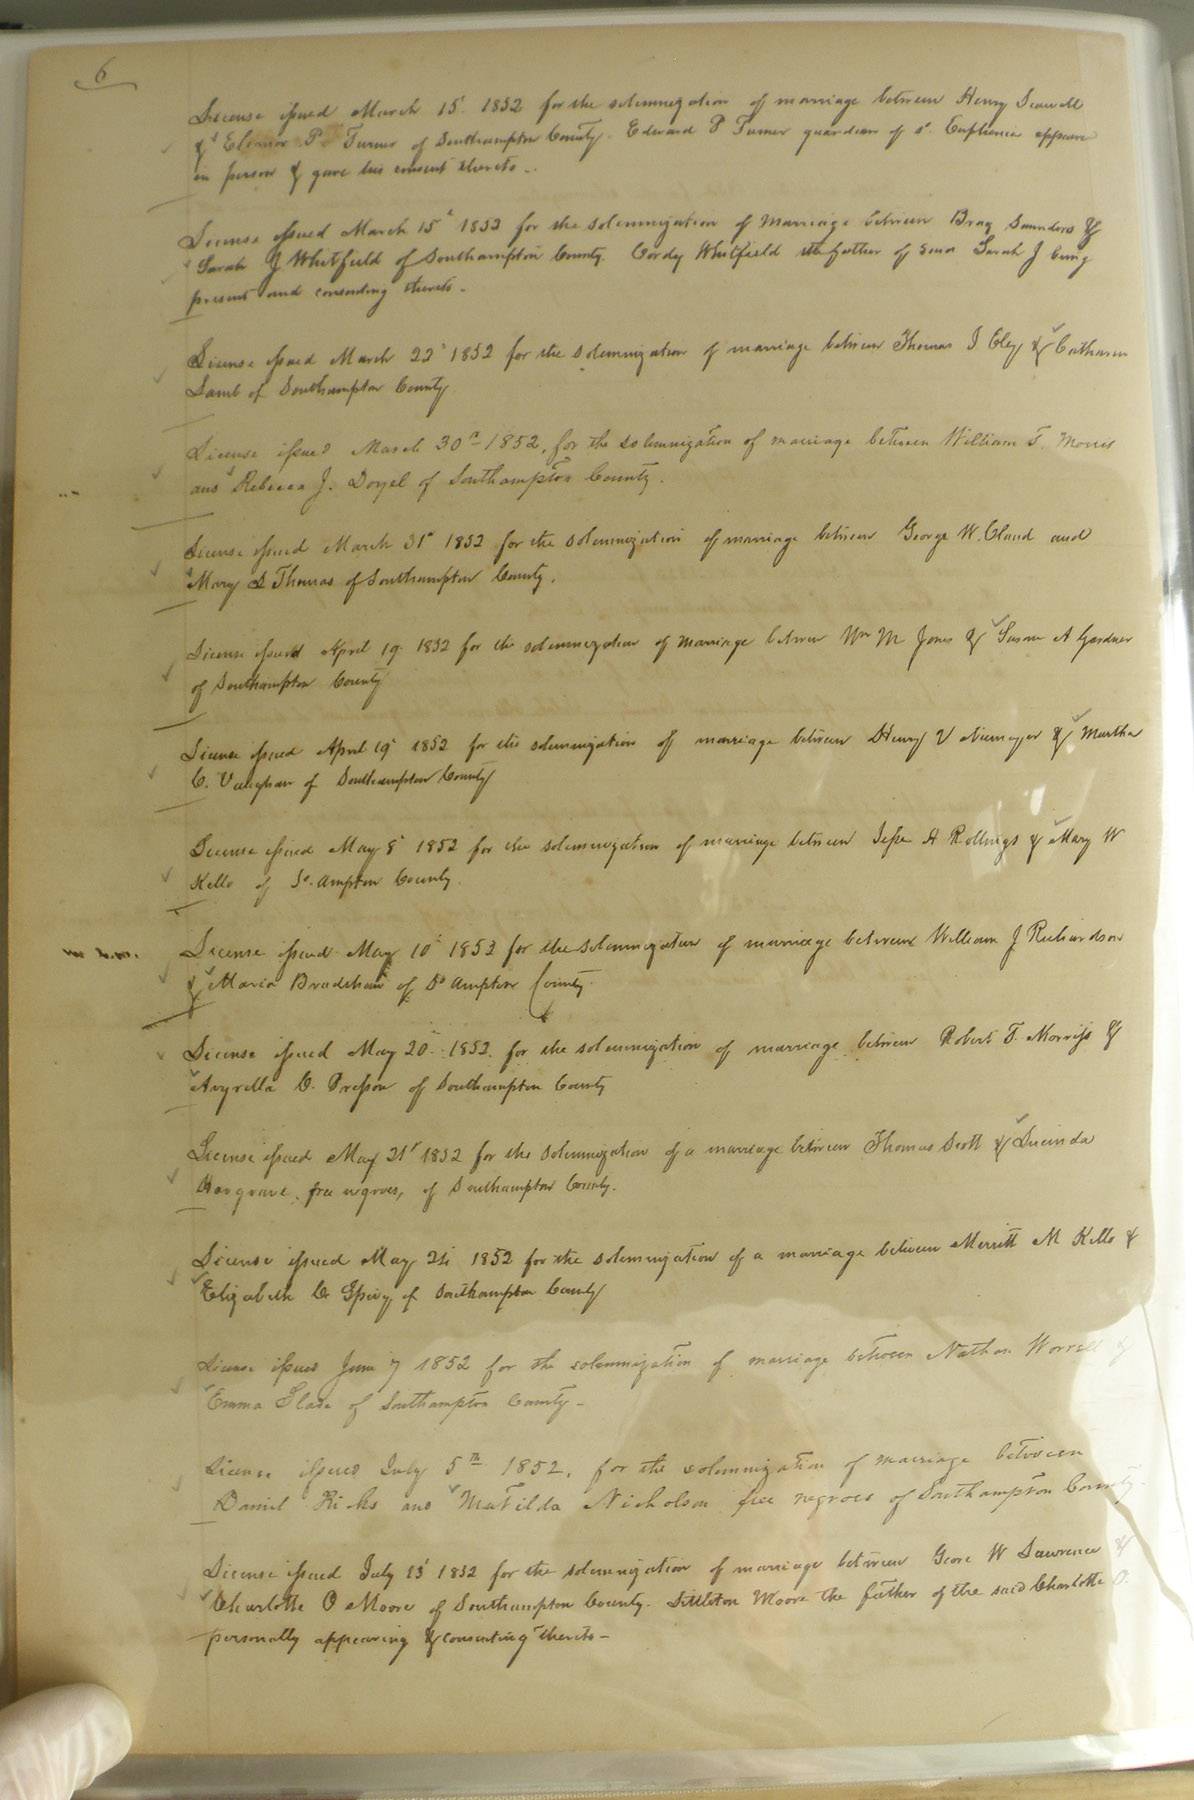 6
License issued March 15 1852 for the solemnization of marriage between Henry
& Eleanor P Turner of Southampton County. Edward P Turner guardian of sd appears
in person & gave his consent thereto.
License issued March 15 1852 for the solemnization of Marriage between Saunders &
Sarah J Whitfield of Southampton County. Cordy Whitfield the father of said Sarah J being
present and consenting thereto.
License issued March 22 1852 for the solemnization of marriage between Thomas J Eley &
Lamb of Southampton County
License issued March 30th 1852, for the solemnization of marriage between William T. Morris
and Rebecca J. Doyel of Southampton County.
License issued March 31st 1852 for the solemnization of marriage between George W. Claud and
Mary S Thomas of Southampton County.
License issued April 19 1852 for the solemnization of marriage between Wm M Jones & Susan A Gardner
of Southampton County
License issued April 19 1852 for the solemnization of marriage between Henry V Niemeyer & Martha
C. Vaughan of Southampton County
License issued May 8 1852 for the solemnization of marriage between Jesse A Rollings & Mary W
Kello of So. Ampton County
License issued May 10 1852 for the solemnization of marriage between William J Richardson
& Maria Bradshaw of So Ampton County
License issued May 20 1852 for the solemnization of marriage between Robert T. Morriss &
C. Presson of Southampton County
License issued May 21st 1852 for the solemnization of a marriage between Thomas Scott & Lucinda
Hargrave, free negroes, of Southampton County.
License issued May 24 1852 for the solemnization of a marriage between Merritt M Kello &
Elizabeth C Spivy of Southampton County
License issued June 7 1852 for the solemnization of marriage between Nathan Worrell &
Emma Slade of Southampton County -
License issued July 5th 1852, for the solemnization of marriage between
Daniel Ricks and Matilda Nicholson free negroes of Southampton County.
License issued July 13 1852 for the solemnization of marriage between Geore W Lawrence &
Charlotte O Moore of Southampton County. Littleton Moore the father of the said Charlotte O.
personally appearing & consenting thereto -